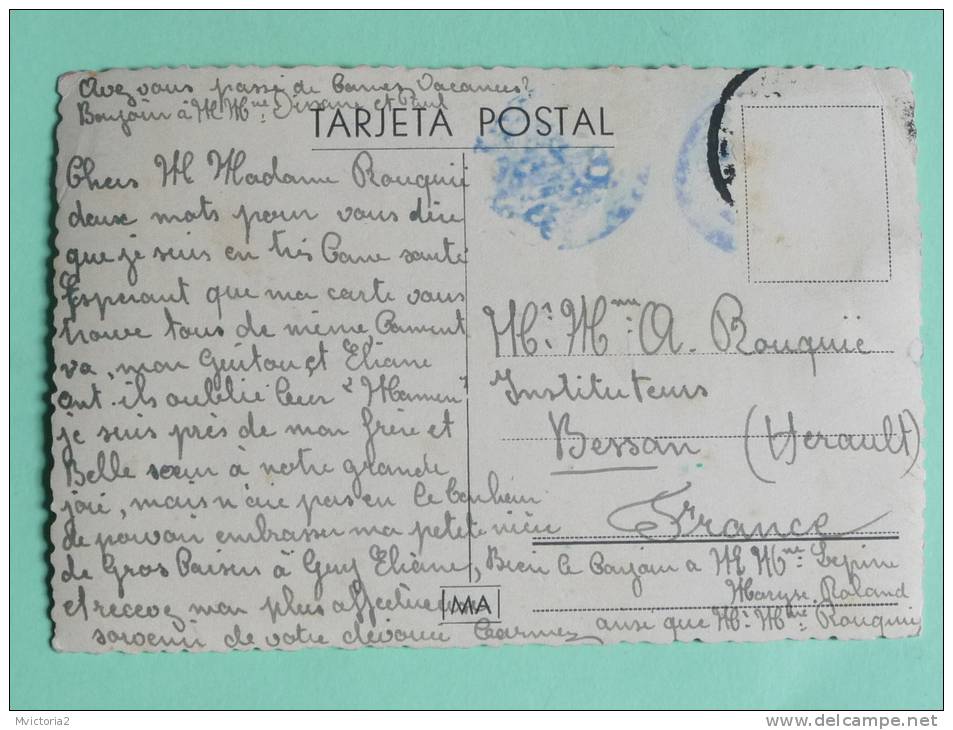 Avez vous passé de bones Vacances?
Bonjour à M Mme et Paul
TARJETA POSTAL
Chers M Madame Rouquié
deux mots pour vous dire
que je suis en très bone santé
Esperant que ma carte vous
trouve tous de même Coment
va, mon Guitou et Eliane
ont-ils oublié leur "Mamen"
je suis près de mon frère et
Belle soeur à notre grande
joie, mais n'aie pas eu le bonheur
de pouvoir embrasser ma petite nièce
de Gros Baisers à Guy Eliane,
et recevez mon plus affectueux
souvenir de votre dévouée Carmen
MA
Mr. Mme A. Rouquié
Instituteurs
Bessan (Herault)
France
Bien le bonjour à M Mme Lepine
Maryse Roland
ansi que Mr Mme Rouquié
Mvictoria2
www.delcampe.net